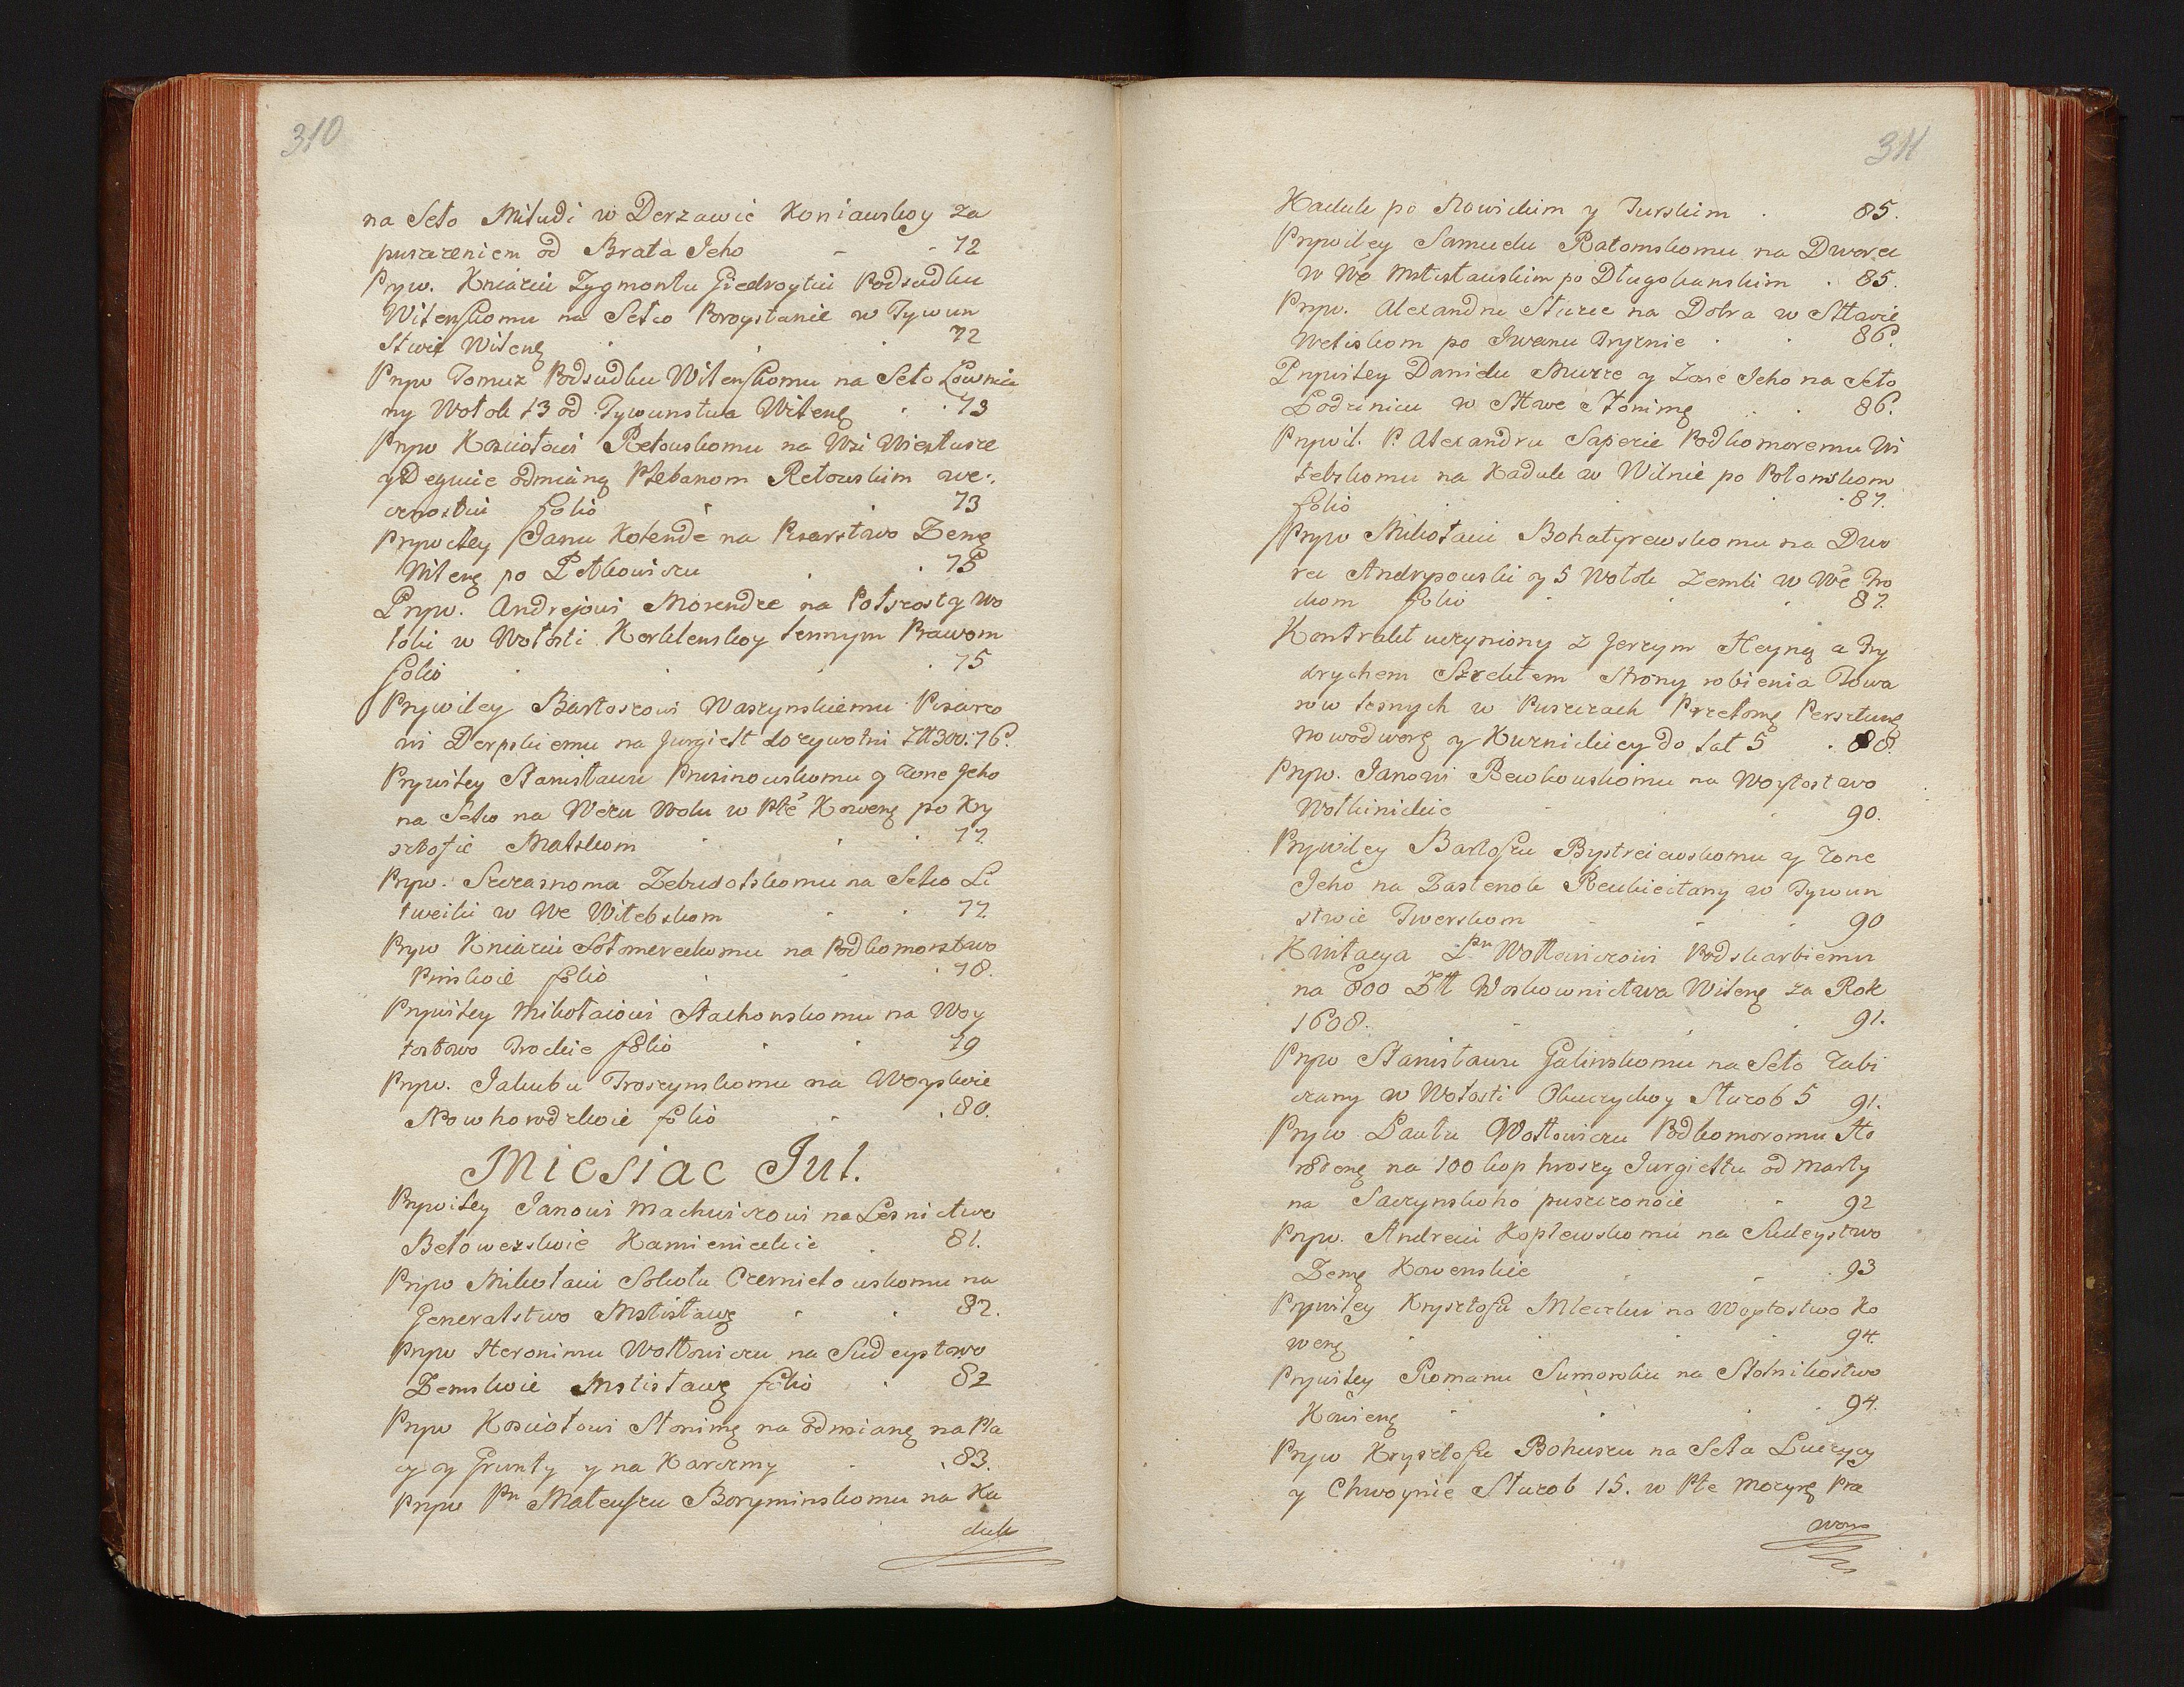 310
na Seło Miłudi w Derzawie Koniawskoy za
puszczeniem od Brata Jeho - - 72
Pryw. Kniaziu Zygmontu Giedroytiu Podsudku
Wilenskomu na Sełco Poroystanie w Tywun
Stwie Wileng 72
Pryw Tomuz Podsudku Wilenskomu na Seło Łownia
ny Wołok 13 od Tywunstwa Wileng 73
Pryw Kosciołowi Retowskomu na Wsi Wiesztusze
y Deguie odmianą Plebanom Retowskim we:
cznostiu folio 73
Prywiley Janu Kolende na Pisarstwo Zeng
Wileng po Petkowiczu 75
Pryw. Andrejowi Morendze na Połszosty Wo
łoki w Wołosti Korklenskoy lennym Prawom
folio 75
Prywiley Bartoszowi Waszynskiemu Pisarzo
wi Derpskiemu na Jurgielt dozywotni Złł 300. 76.
Prywiley Stanisławu Prusinowskomu y zone Jeho
na Sełco na Weru Wolu w Płe Koweng po Kry
sztofie Matskom 77.
Pryw. Szczasnoma Zebrudolskomu na Sełco Li
tweiki w We Witebskom 77
Pryw Kniaziu Sołomereckomu na Podkomorstwo
Pinskoie folio 78.
Prywiley Mikołaiowi Stachowskomu na Woy
tostwo Trockie folio 79
Pryw. Jakubu Troszynskomu na Woyskoie
Nowhorodzkoie folio 80.
Miesiac Jul.
Prywiley Janowi Machwiczowi na Lesnictwo
Bełowezskoie Kamienieckie 81.
Pryw Mikołaiu Sokołu Czerniełowskomu na
Generalstwo Mstisławg 82.
Pryw Heronimu Wołłowiczu na Sudeystwo
Zemskoie Mstisławg folio 82
Pryw Kosciołowi Słonimg na odmianę na Pla
cy y Grunty y na Karczmy 83.
Pryw Pn Mateuszu Boryminskomu na Ka
duk
311
Kaduk po Nowickim y Turskim 85.
Prywiley Samuelu Ratomskomu na Dworec
w We Mstisławskim po Długokanskim 85.
Pryw. Alexandru Sturce na Dobra w Sttwie
Weliskom po Iwanu Tryznie 86.
Prywiley Danielu Murze y Zone Jeho na Seło
Łodzinicu w Sttwe Słonimg 86.
Prywil. P. Alexandru Sapezie Podkomoremu Wi
tebskomu na Kaduk w Wilnie po Połomskom
folio 87.
Pryw Mikołaiu Bohatyrewskomu na Dwo
rec Andryowski y 5 Wołok Zemli w We Tro
ckom folio 87.
Kontrakt uczyniony z Jerzym Heyną a Fry
drychem Szreltem Strony robienia Towa
row lesnych w Puszczach Przełomg Persztung
Nowodworg y Kuznickiey do lat 5 88.
Pryw. Janowi Bewkowskomu na Woytostwo
Wołkinickie 90.
Prywiley Bartoszu Bystreiewskomu y zone
Jeho na Zastenok Reukieitany w Tywun
stwie Twerskom 90
Kwitacya Pn Wołłowiczowi Podskarbiemu
na 800 Złł Woskownictwa Wileng za Rok
1608. 91.
Pryw Stanisławu Galinskomu na Seło Zabi
czany w Wołosti Obuczyckoy Słuzob 5 91.
Pryw Pawłu Wołłowiczu Podkomoromu Ho
rodeng na 100 kop hroszy Jurgieltu od Marty
na Saczynskoho puszczonoie 92
Pryw. Andreiu Koplewskomu na Sudeystwo
Zemg Kowenskie 93
Prywiley Krysztofu Mleczku na Woytostwo Ko
weng 94.
Prywiley Romanu Sumoroku na Stolnikostwo
Kowieng 94.
Pryw Krysztofu Bohuszu na Sela Luczycy
y Chwoynie Słuzob 15. w Pte Mozyrg Pra
wom